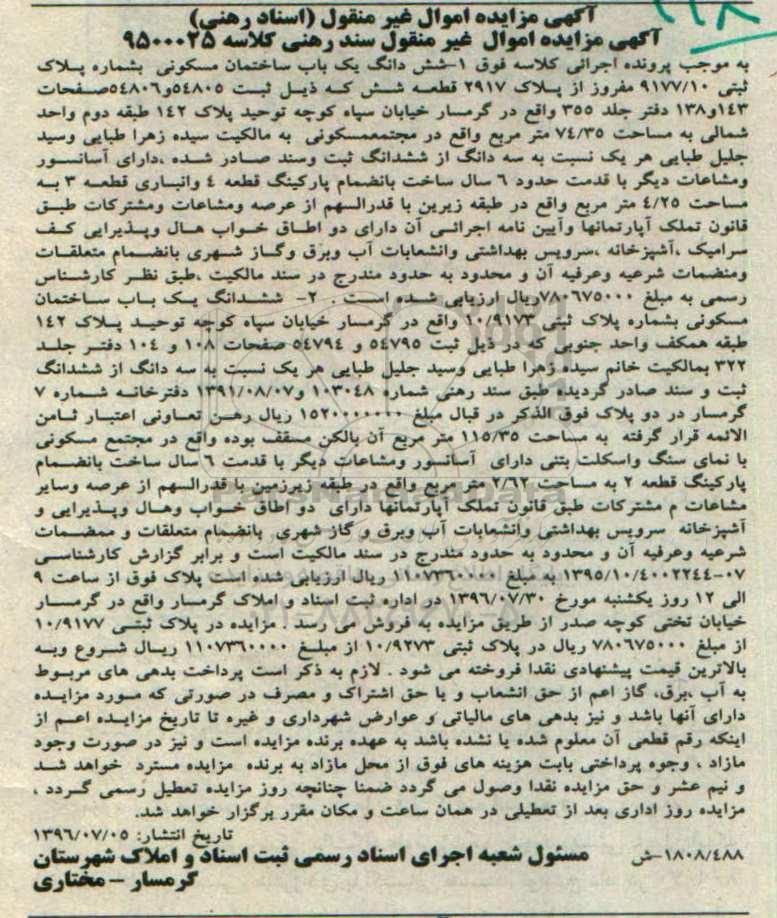 ۱۱۸
آگهی مزایده اموال غیر منقول (اسناد رهنی)
آگهی مزایده اموال غیر منقول سند رهنی کلاسه ۹۵۰۰۰۲۵
به موجب پرونده اجرائی کلاسه فوق ۱-شش دانگ یک باب ساختمان مسکونی بشماره پلاک
ثبتی ۹۱۷۷/۱۰ مفروز از پلاک ۲۹۱۷ قطعه شش که ذیل ثبت ۵۴۸۰۵و۵۴۸۰۶صفحات
۱۴۳و۱۳۸ دفتر جلد ۳۵۵ واقع در گرمسار خیابان سپاه کوچه توحید پلاک ۱۴۲ طبقه دوم واحد
شمالی به مساحت ۷۴/۳۵ متر مربع واقع در مجتمعمسکونی به مالکیت سیده زهرا طبایی وسید
جلیل طبایی هر یک نسبت به سه دانگ از ششدانگ ثبت وسند صادر شده ،دارای آسانسور
ومشاعات دیگر با قدمت حدود ۶ سال ساخت بانضمام پارکینگ قطعه ٤ وانباری قطعه ۳ به
مساحت ۴/۲۵ متر مربع واقع در طبقه زیرین با قدرالسهم از عرصه ومشاعات ومشترکات طبق
قانون تملک آپارتمانها وآیین نامه اجرائی آن دارای دو اطاق خواب هال وپذیرایی کف
سرامیک ،آشپزخانه ،سرویس بهداشتی وانشعابات آب وبرق وگاز شهری بانضمام متعلقات
ومنضمات شرعیه وعرفیه آن و محدود به حدود مندرج در سند مالکیت ،طبق نظر کارشناس
رسمی به مبلغ ۷۸۰۶۷۵۰۰۰ریال ارزیابی شده است . ۲- ششدانگ یک باب ساختمان
مسکونی بشماره پلاک ثبتی ۱۰/۹۱۷۳ واقع در گرمسار خیابان سپاه کوچه توحید پلاک ۱۴۲
طبقه همکف واحد جنوبی که در ذیل ثبت ۵۴۷۹۵ و ۵۴۷۹۴ صفحات ۱۰۸ و ۱۰۴ دفتر جلد
۳۲۲ بمالکیت خانم سیده زهرا طبایی وسید جلیل طبایی هر یک نسبت به سه دانگ از ششدانگ
ثبت و سند صادر گردیده طبق سند رهنی شماره ۱۰۳۰۴۸ و۱۳۹۱/۰۸/۰۷ دفترخانه شماره ۷
گرمسار در دو پلاک فوق الذکر در قبال مبلغ ۱۵۲۰۰۰۰۰۰۰ ریال رهن تعاونی اعتبار ثامن
الائمه قرار گرفته به مساحت ۱۱۵/۳۵ متر مربع آن بالکن مسقف بوده واقع در مجتمع مسکونی
با نمای سنگ واسکلت بتنی دارای آسانسور ومشاعات دیگر با قدمت ۶ سال ساخت بانضمام
پارکینگ قطعه ۲ به مساحت ۲/۶۲ متر مربع واقع در طبقه زیرزمین با قدرالسهم از عرصه وسایر
مشاعات م مشترکات طبق قانون تملک آپارتمانها دارای دو اطاق خواب وهال وپذیرایی و
آشپزخانه سرویس بهداشتی وانشعابات آب وبرق و گاز شهری بانضمام متعلقات و ممضمات
شرعیه وعرفیه آن و محدود به حدود مندرج در سند مالکیت است و برابر گزارش کارشناسی
۱۳۹۵/۱۰/۴۰۰۲۲۴۴-۰۷ به مبلغ ۱۱۰۷۳۶۰۰۰۰ ریال ارزیابی شده است پلاک فوق از ساعت ۹
الی ۱۲ روز یکشنبه مورخ ۱۳۹۶/۰۷/۳۰ در اداره ثبت اسناد و املاک گرمسار واقع در گرمسار
خیابان تختی کوچه صدر از طریق مزایده به فروش می رسد . مزایده در پلاک ثبتی ۱۰/۹۱۷۷
از مبلغ ۷۸۰۶۷۵۰۰۰ ریال در پلاک ثبتی ۱۰/۹۲۷۳ از مبلغ ۱۱۰۷۳۶۰۰۰۰ ریال شروع وبه
بالاترین قیمت پیشنهادی نقدا فروخته می شود . لازم به ذکر است پرداخت بدهی های مربوط
به آب ،برق، گاز اعم از حق انشعاب و یا حق اشتراک و مصرف در صورتی که مورد مزایده
دارای آنها باشد و نیز بدهی های مالیاتی و عوارض شهرداری و غیره تا تاریخ مزایده اعم از
اینکه رقم قطعی آن معلوم شده یا نشده باشد به عهده برنده مزایده است و نیز در صورت وجود
مازاد ، وجوه پرداختی بابت هزینه های فوق از محل مازاد به برنده مزایده مسترد خواهد شد
و نیم عشر و حق مزایده نقدا وصول می گردد ضمنا چنانچه روز مزایده تعطیل رسمی گردد ،
مزایده روز اداری بعد از تعطیلی در همان ساعت و مکان مقرر برگزار خواهد شد.
تاریخ انتشار: ۱۳۹۶/۰۷/۰۵
۱۸۰۸/٤۸۸-ش مسئول شعبه اجرای اسناد رسمی ثبت اسناد و املاک شهرستان
گرمسار - مختاری